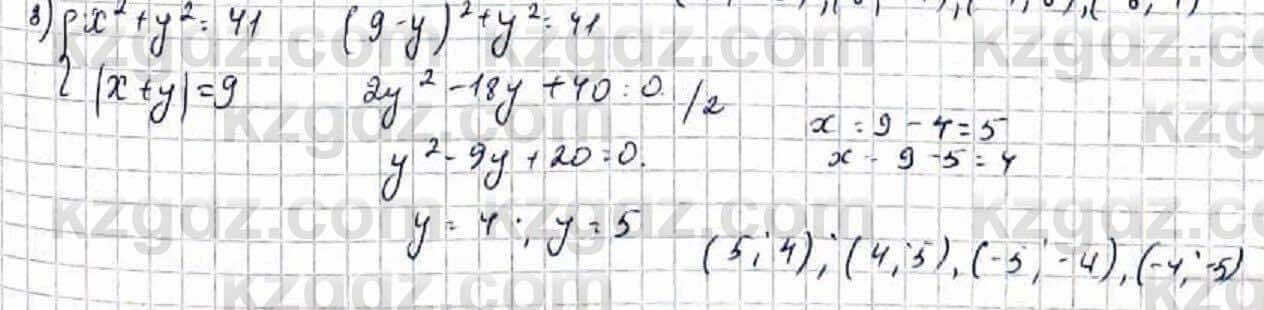 8) { x² + y² = 41
|x + y| = 9
(9 - y)² + y² = 41
2y² - 18y + 40 = 0 /2
y² - 9y + 20 = 0.
y = 4; y = 5
x = 9 - 4 = 5
x = 9 - 5 = 4
(5; 4); (4; 5), (-5; -4), (-4; -5)
kzgdz.com